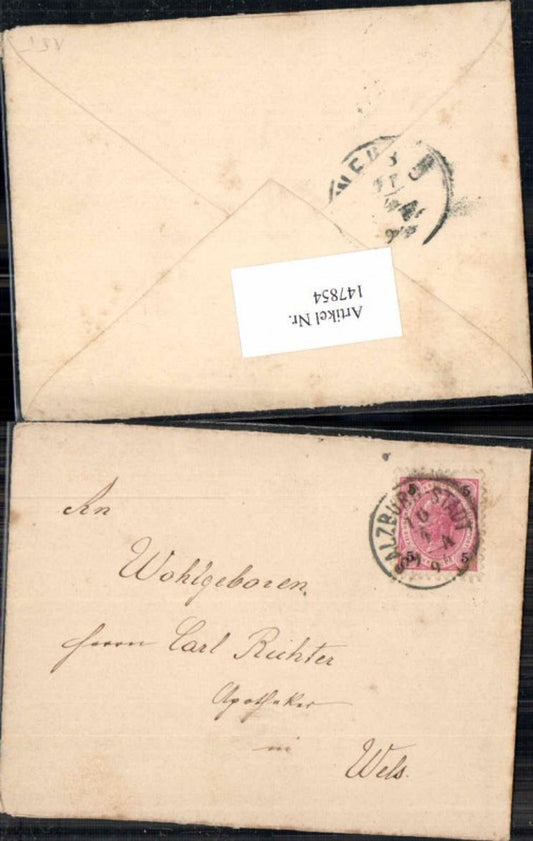 Artikel Nr.
147854
An
Wohlgeboren
Herrn Carl Richter
Apotheker
in
Wels.
SALZBURG-STADT
5 5
5 5